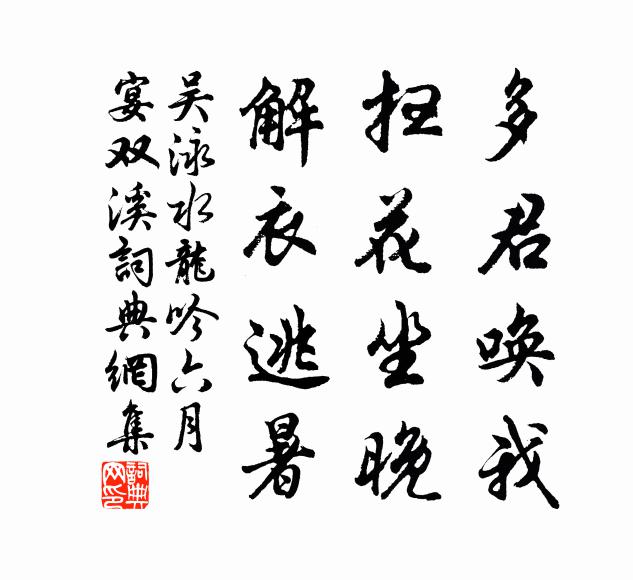 多君唤我
扫花坐晚
解衣逃暑
吴泳水龍吟六月
宴双溪詞典網集
詞典
网印